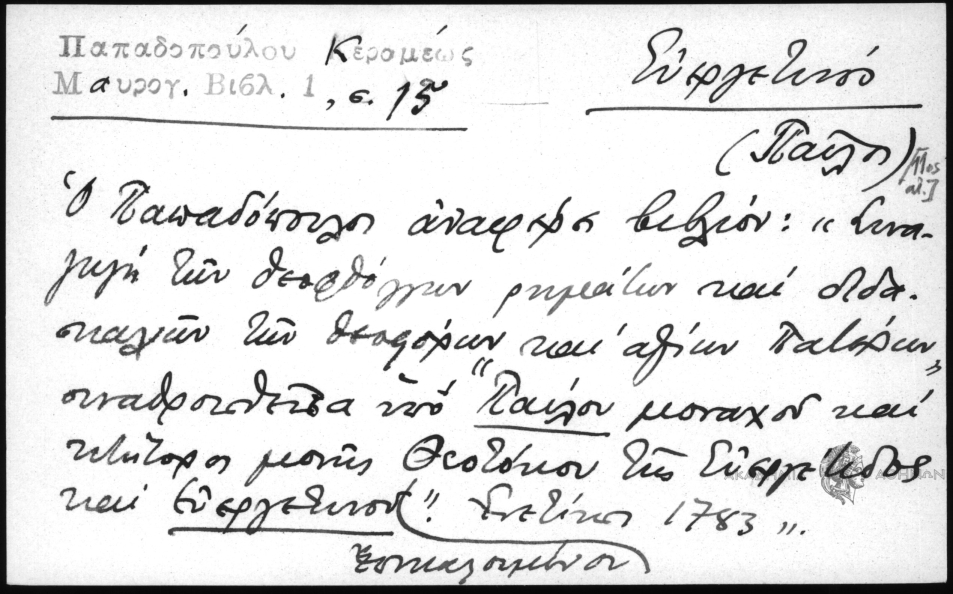 Παπαδοπούλου Κεραμέως
Μαυρογ. Βιβλ. 1, σ. 15
Εὐεργετινό
(Παῦλος)
[11ος
αἰ.]
Ὁ Παπαδόπουλος ἀναφέρει βιβλίον: "Συνα-
γωγὴ τῶν θεοφθόγγων ρημάτων καὶ διδα-
σκαλιῶν τῶν θεοφόρων καὶ ἁγίων Πατέρων"
συναθροισθεῖσα ὑπὸ "Παύλου μοναχοῦ καὶ
κτήτορος μονῆς Θεοτόκου τῆς Εὐεργέτιδος
καὶ Εὐεργετινοῦ". Ἐνετίησι 1783".
ἐπικαλουμένου
ΑΚΑΔΗΜΙΑ ΑΘΗΝΩΝ